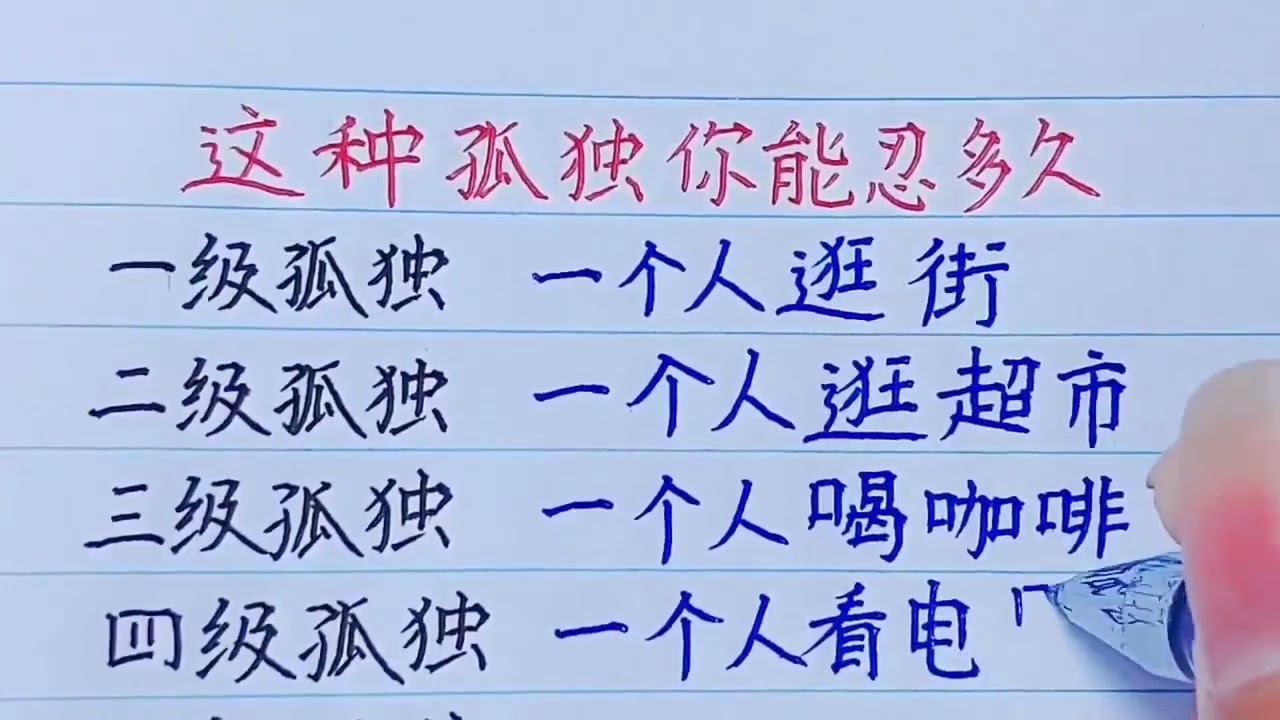 这种孤独你能忍多久
一级孤独 一个人逛街
二级孤独 一个人逛超市
三级孤独 一个人喝咖啡
四级孤独 一个人看电